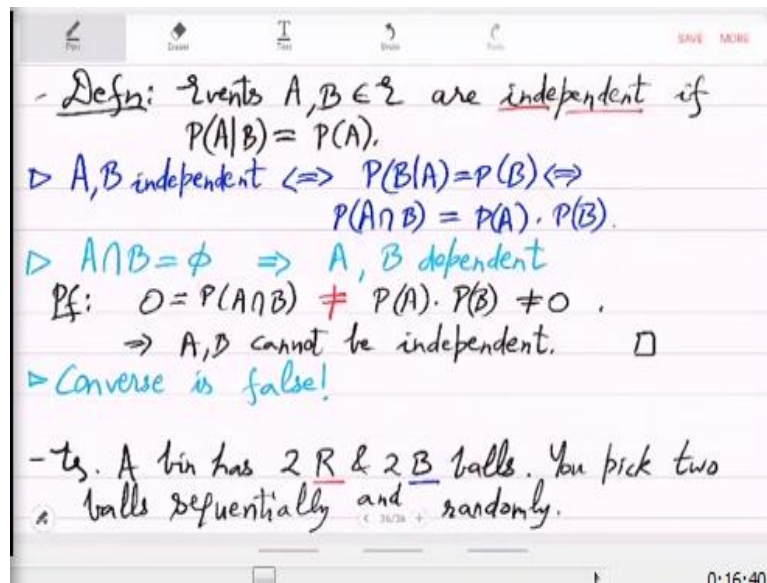 Pen Eraser Text Undo Redo SAVE MORE
- Defn: Events A, B ∈ Ɛ are independent if
P(A|B) = P(A).
▷ A, B independent <=> P(B|A) = P(B) <=>
P(A∩B) = P(A) . P(B).
▷ A∩B = ϕ => A, B dependent
Pf: 0 = P(A∩B) ≠ P(A) . P(B) ≠ 0 .
=> A, B cannot be independent. □
▷ Converse is false!
- Eg. A bin has 2 R & 2 B balls. You pick two
balls sequentially and randomly.
< 36/36 +
0:16:40